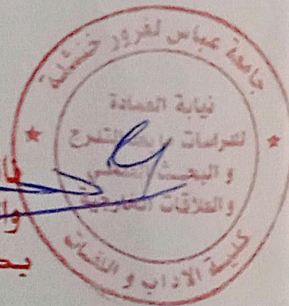 جامعة عباس لغرور خنشلة
نيابة العمادة
للدراسات ما بعد التدرج
و البحث العلمي
و العلاقات الخارجية
كلية الآداب و اللغات